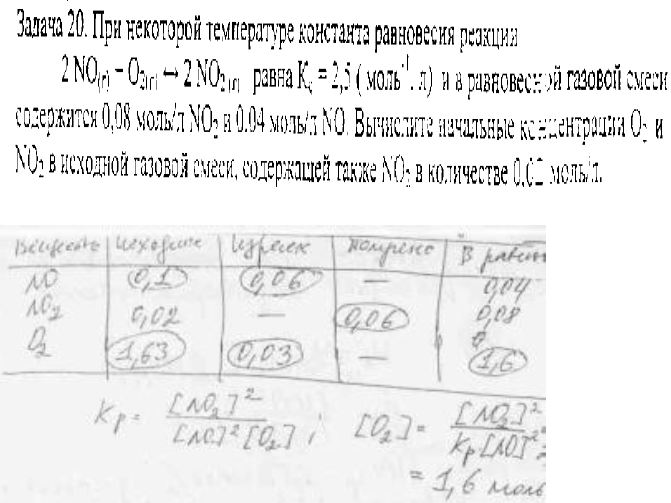 Задача 20. При некоторой температуре константа равновесия реакции
2 NO(г) + O2(г) ↔ 2 NO2 (г) равна Kc = 2,5 ( моль⁻¹. л) и в равновесной газовой смеси
содержится 0,08 моль/л NO2 и 0.04 моль/л NO. Вычислите начальные концентрации O2 и
NO2 в исходной газовой смеси, содержащей также NO2 в количестве 0,02 моль/л.
Вещество Исходные Израсх В равн
NO 0,1 0,06 — 0,04
NO2 0,02 — 0,06 0,08
O2 1,63 0,03 — 1,6
Kp = [NO2]² / [NO]²[O2] ; [O2] = [NO2]² / Kp[NO]²
= 1,6 моль